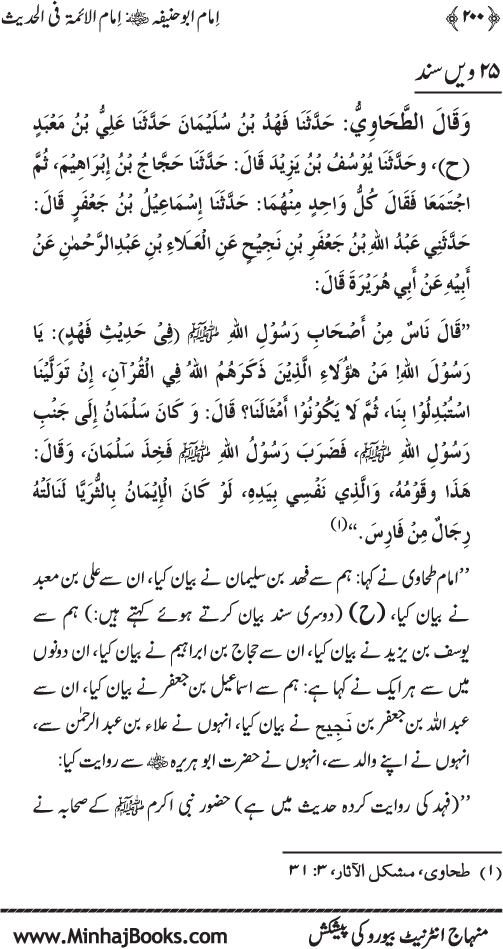 ﴿۲۰۰﴾ اِمام ابوحنیفہ ؓ: اِمام الائمۃ فی الحدیث
۲۵ ویں سند
وَقَالَ الطَّحَاوِيُّ: حَدَّثَنَا فَهْدُ بْنُ سُلَيْمَانَ حَدَّثَنَا عَلِيُّ بْنُ مَعْبَدٍ
(ح)، وحَدَّثَنَا يُوْسُفُ بْنُ يَزِيْدَ قَالَ: حَدَّثَنَا حَجَّاجُ بْنُ إِبْرَاهِيْمَ، ثُمَّ
اجْتَمَعَا فَقَالَ كُلُّ وَاحِدٍ مِنْهُمَا: حَدَّثَنَا إِسْمَاعِيْلُ بْنُ جَعْفَرٍ قَالَ:
حَدَّثَنِي عَبْدُ اللهِ بْنُ جَعْفَرِ بْنِ نَجِيْحٍ عَنِ الْعَـلَاءِ بْنِ عَبْدِالرَّحْمٰنِ عَنْ
أَبِيْهِ عَنْ أَبِي هُرَيْرَةَ قَالَ:
”قَالَ نَاسٌ مِنْ أَصْحَابِ رَسُوْلِ اللهِ ﷺ (فِيْ حَدِيْثِ فَهْدٍ): يَا
رَسُوْلَ اللهِ! مَنْ هٰؤُلَاءِ الَّذِيْنَ ذَكَرَهُمُ اللهُ فِي الْقُرْآنِ، إِنْ تَوَلَّيْنَا
اسْتُبْدِلُوْا بِنَا، ثُمَّ لَا يَكُوْنُوْا أَمْثَالَنَا؟ قَالَ: وَ كَانَ سَلْمَانُ إِلَى جَنْبِ
رَسُوْلِ اللهِ ﷺ، فَضَرَبَ رَسُوْلُ اللهِ ﷺ فَخِذَ سَلْمَانَ، وَقَالَ:
هَذَا وَقَوْمُهُ، وَالَّذِي نَفْسِي بِيَدِهِ، لَوْ كَانَ الْإِيْمَانُ بِالثُّرَيَّا لَنَالَتْهُ
رِجَالٌ مِنْ فَارِسَ.“(۱)
’’امام طحاوی نے کہا: ہم سے فھد بن سلیمان نے بیان کیا، ان سے علی بن معبد
نے بیان کیا، (ح) (دوسری سند بیان کرتے ہوئے کہتے ہیں:) ہم سے
یوسف بن یزید نے بیان کیا، ان سے حجاج بن ابراہیم نے بیان کیا، ان دونوں
میں سے ہر ایک نے کہا ہے: ہم سے اسماعیل بن جعفر نے بیان کیا، ان سے
عبد اللہ بن جعفر بن نَجِیح نے بیان کیا، انہوں نے علاء بن عبد الرحمٰن سے،
انہوں نے اپنے والد سے، انہوں نے حضرت ابو ہریرہ ؓ سے روایت کیا:
’’(فہد کی روایت کردہ حدیث میں ہے) حضور نبی اکرم ﷺ کے صحابہ نے
(۱) طحاوی، مشکل الآثار، ۳: ۳۱
منہاج انٹرنیٹ بیورو کی پیشکش www.MinhajBooks.com